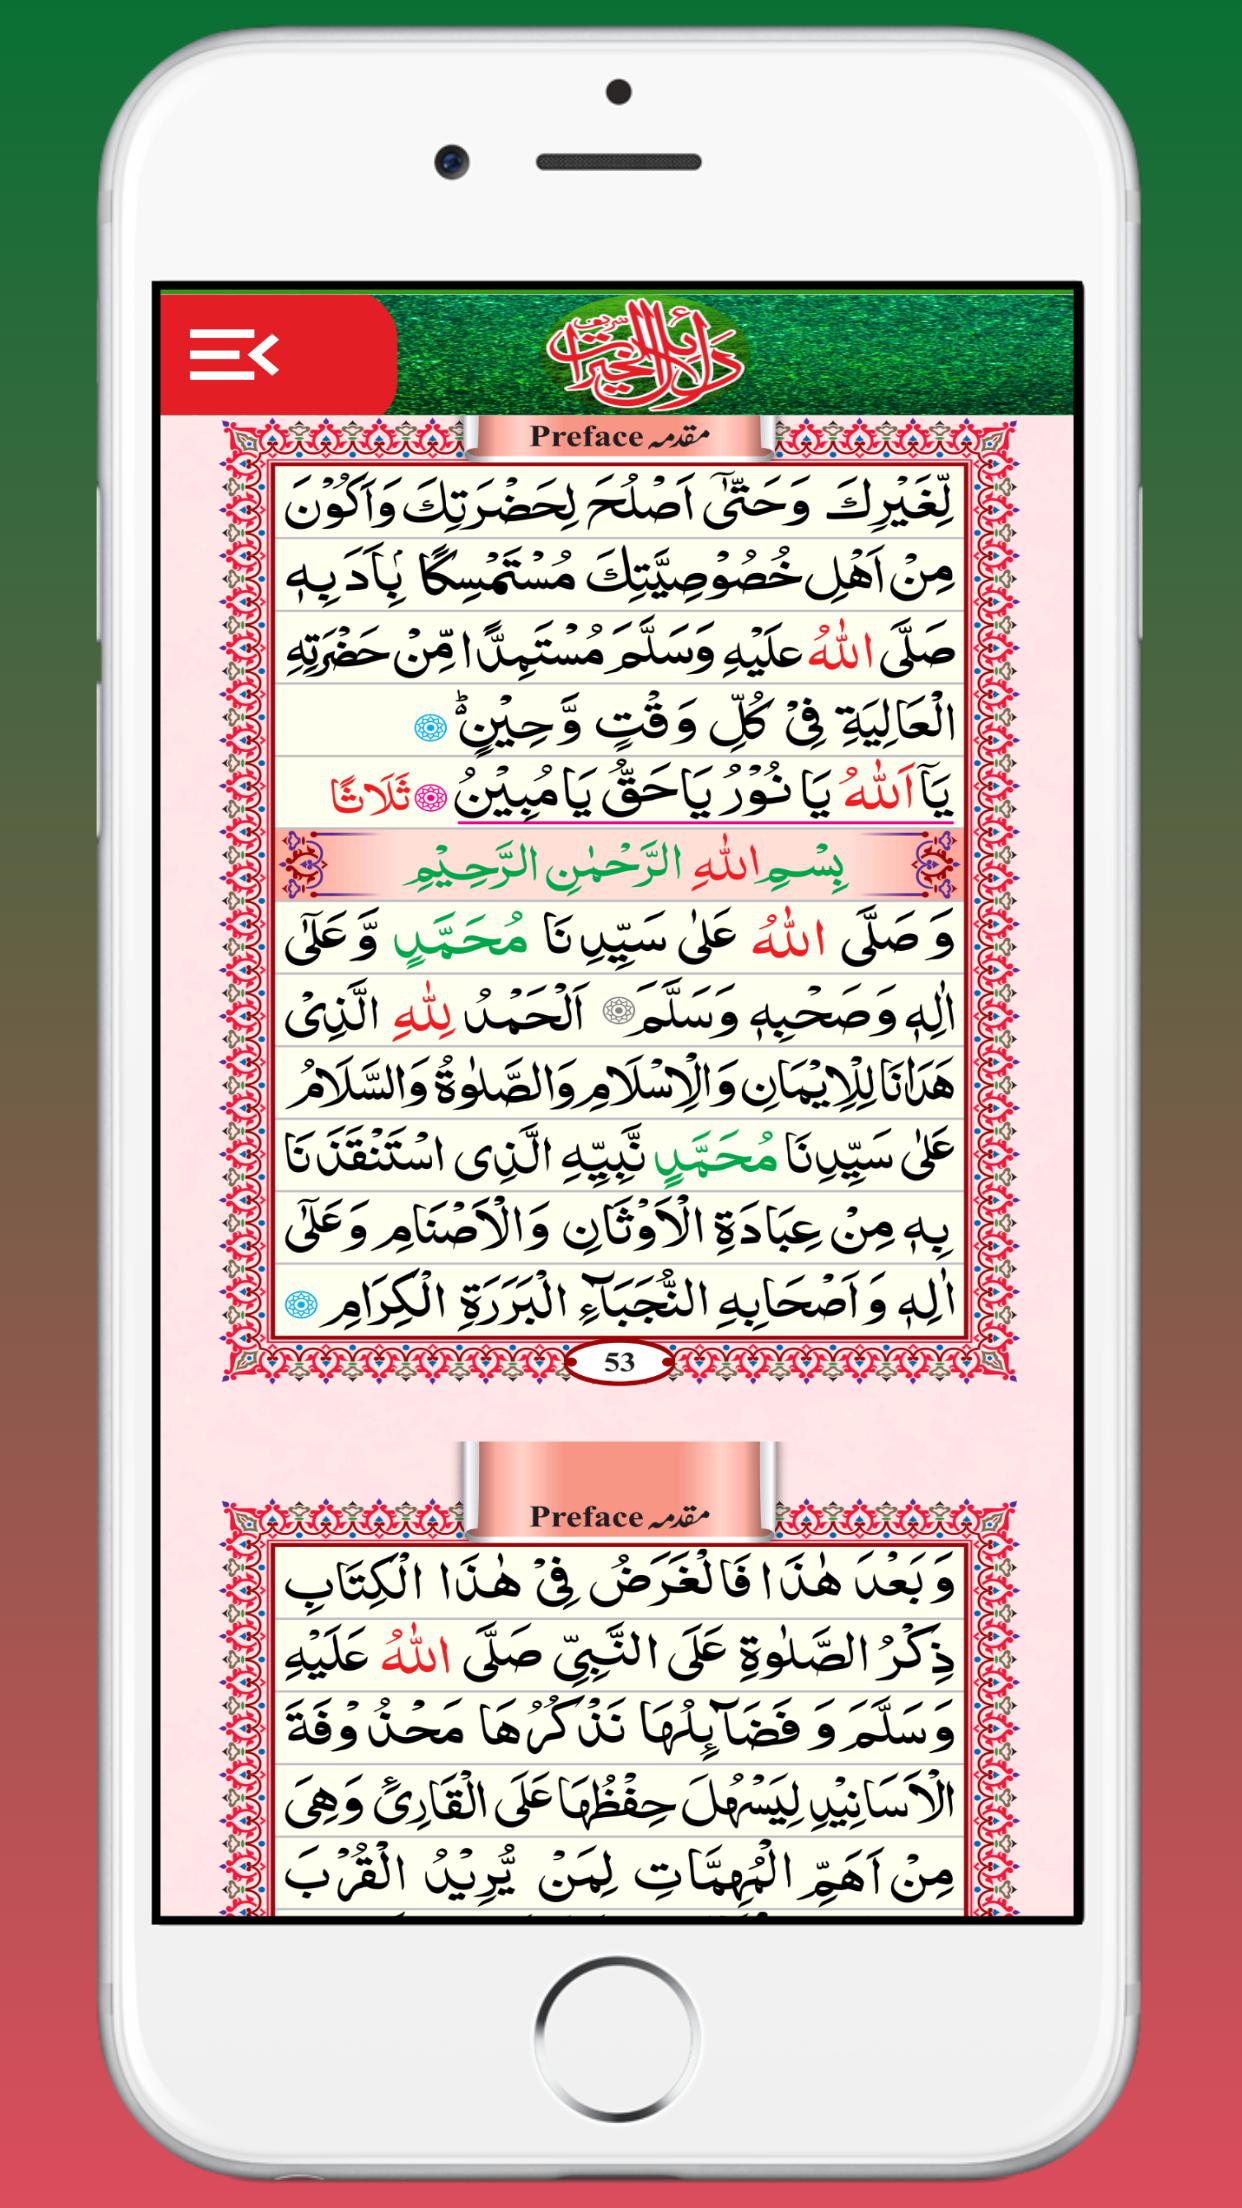 دلائل الخیرات شریف
Preface مقدمہ
لِّغَيْرِكَ وَحَتّٰٓى اَصْلُحَ لِحَضْرَتِكَ وَاَكُوْنَ
مِنْ اَهْلِ خُصُوْصِيَّتِكَ مُسْتَمْسِكًا بِۢاَدَبِهٖ
صَلَّى اللّٰهُ عَلَيْهِ وَسَلَّمَ مُسْتَمِدًّا مِّنْ حَضْرَتِهِ
الْعَالِيَةِ فِىْ كُلِّ وَقْتٍ وَّحِيْنٍؕ
يَآ اَللّٰهُ يَا نُوْرُ يَا حَقُّ يَا مُبِيْنُ ثَلَاثًا
بِسْمِ اللّٰهِ الرَّحْمٰنِ الرَّحِيْمِ
وَصَلَّى اللّٰهُ عَلٰى سَيِّدِنَا مُحَمَّدٍ وَّعَلٰٓى
اٰلِهٖ وَصَحْبِهٖ وَسَلَّمَ اَلْحَمْدُ لِلّٰهِ الَّذِىْ
هَدَانَا لِلْاِيْمَانِ وَالْاِسْلَامِ وَالصَّلٰوةُ وَالسَّلَامُ
عَلٰى سَيِّدِنَا مُحَمَّدٍ نَّبِيِّهِ الَّذِى اسْتَنْقَذَنَا
بِهٖ مِنْ عِبَادَةِ الْاَوْثَانِ وَالْاَصْنَامِ وَعَلٰٓى
اٰلِهٖ وَاَصْحَابِهِ النُّجَبَآءِ الْبَرَرَةِ الْكِرَامِ
53
Preface مقدمہ
وَبَعْدَ هٰذَا فَالْغَرَضُ فِىْ هٰذَا الْكِتَابِ
ذِكْرُ الصَّلٰوةِ عَلَى النَّبِيِّ صَلَّى اللّٰهُ عَلَيْهِ
وَسَلَّمَ وَفَضَآئِلُهَا نَذْكُرُهَا مَحْذُوْفَةَ
الْاَسَانِيْدِ لِيَسْهُلَ حِفْظُهَا عَلَى الْقَارِئِ وَهِىَ
مِنْ اَهَمِّ الْمُهِمَّاتِ لِمَنْ يُّرِيْدُ الْقُرْبَ